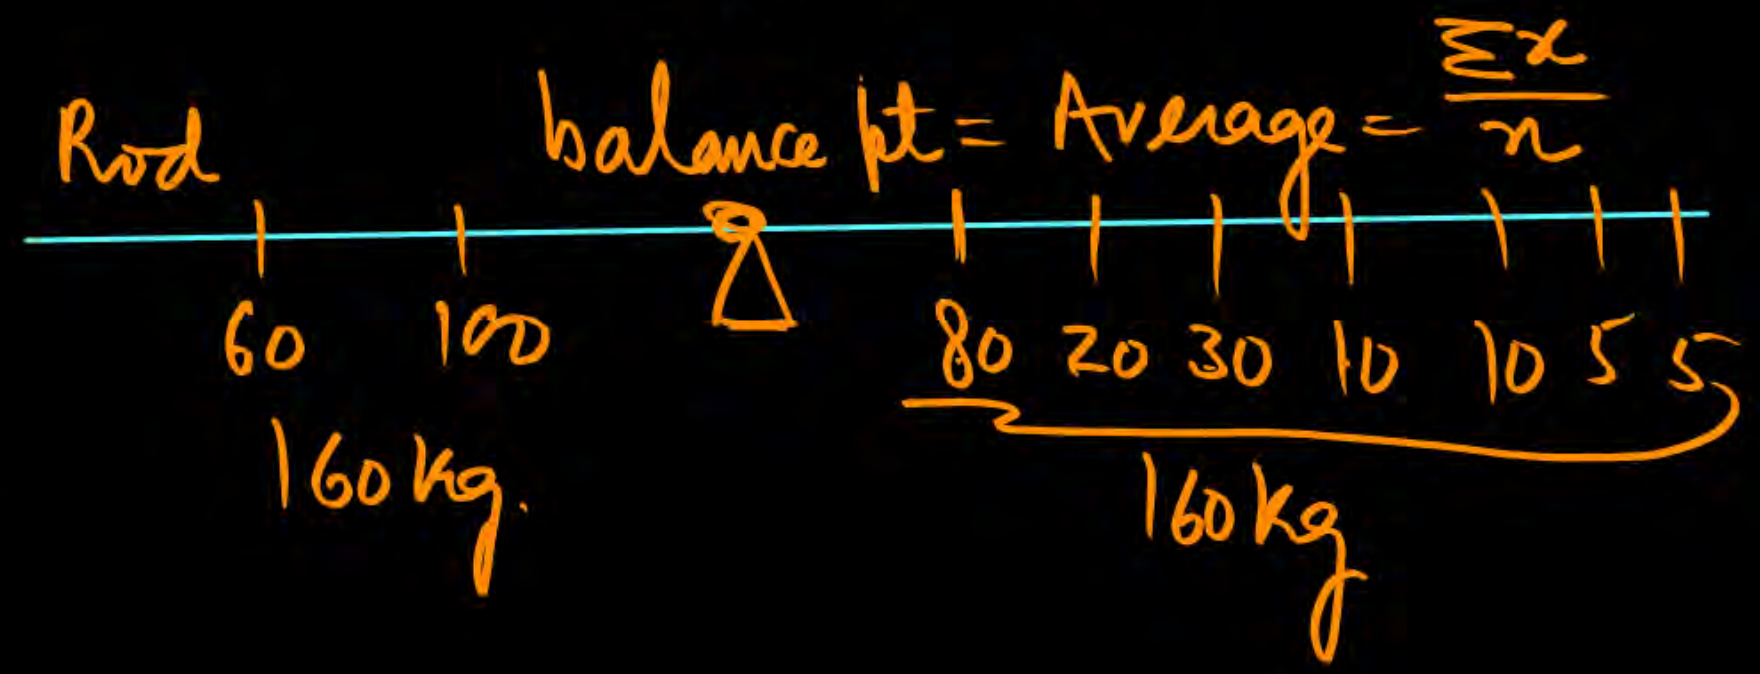 Rod balance pt = Average = Σx/n
60 100 80 20 30 10 10 5 5
160 kg. 160 kg